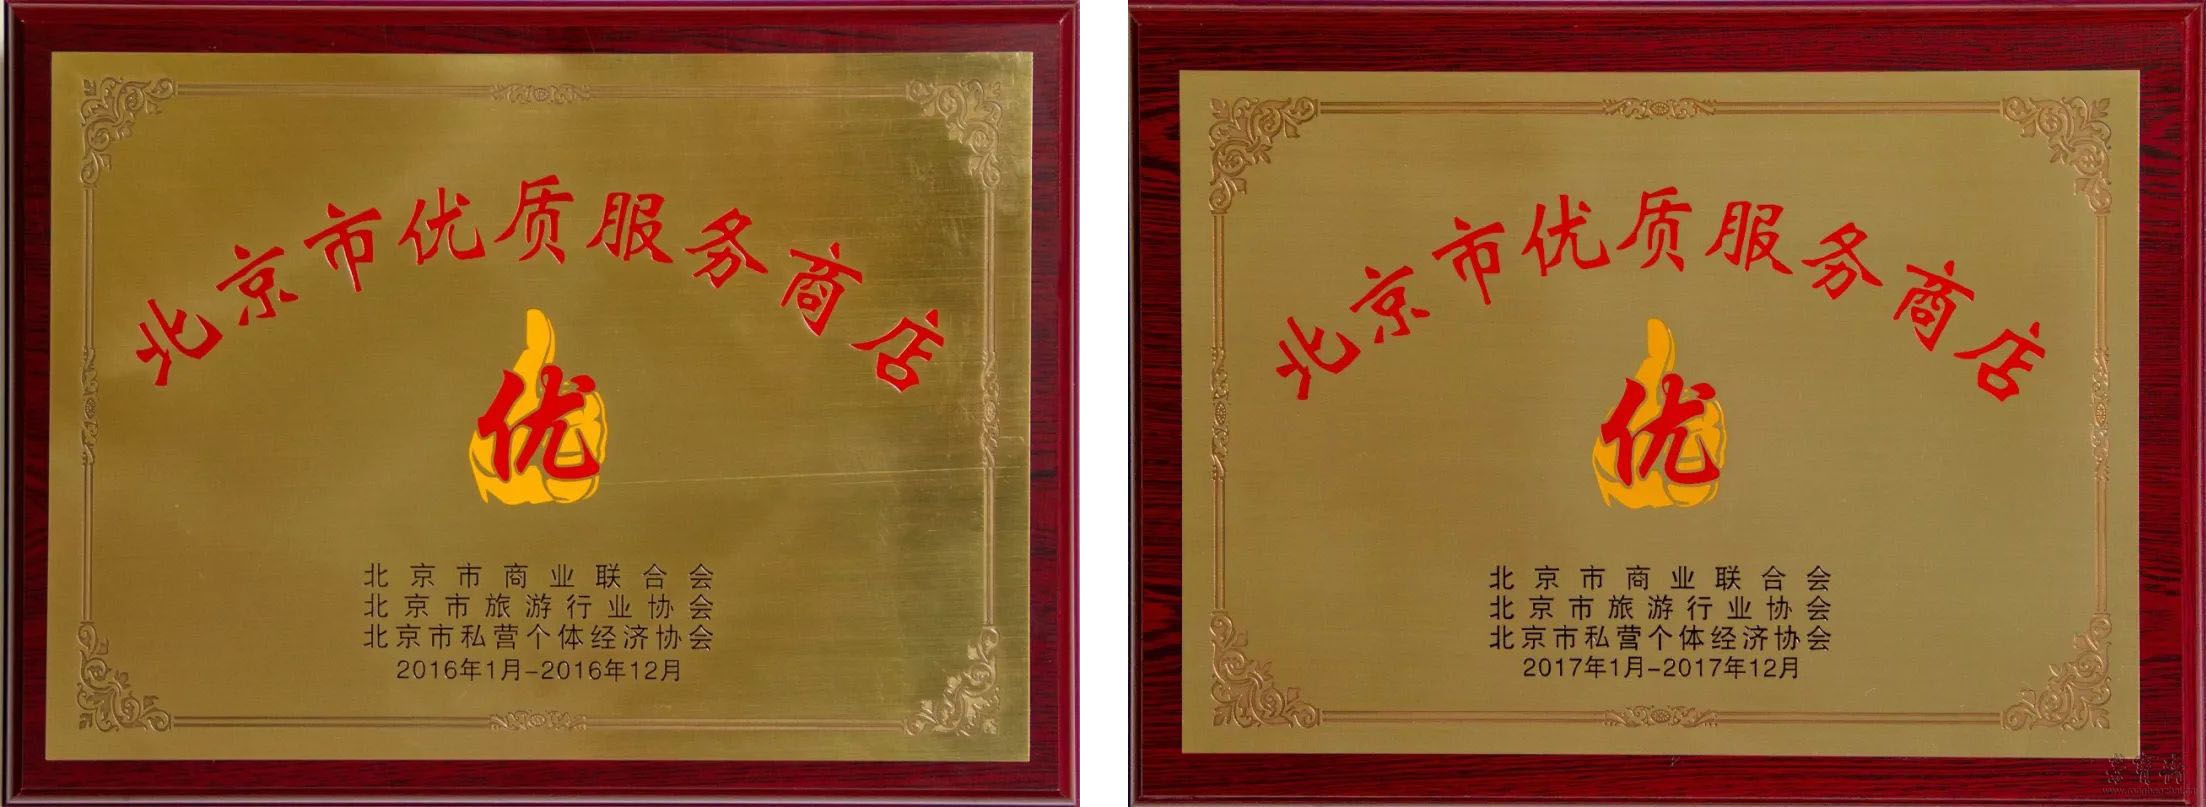 北京市优质服务商店
优
北京市商业联合会
北京市旅游行业协会
北京市私营个体经济协会
2016年1月-2016年12月
北京市优质服务商店
优
北京市商业联合会
北京市旅游行业协会
北京市私营个体经济协会
2017年1月-2017年12月